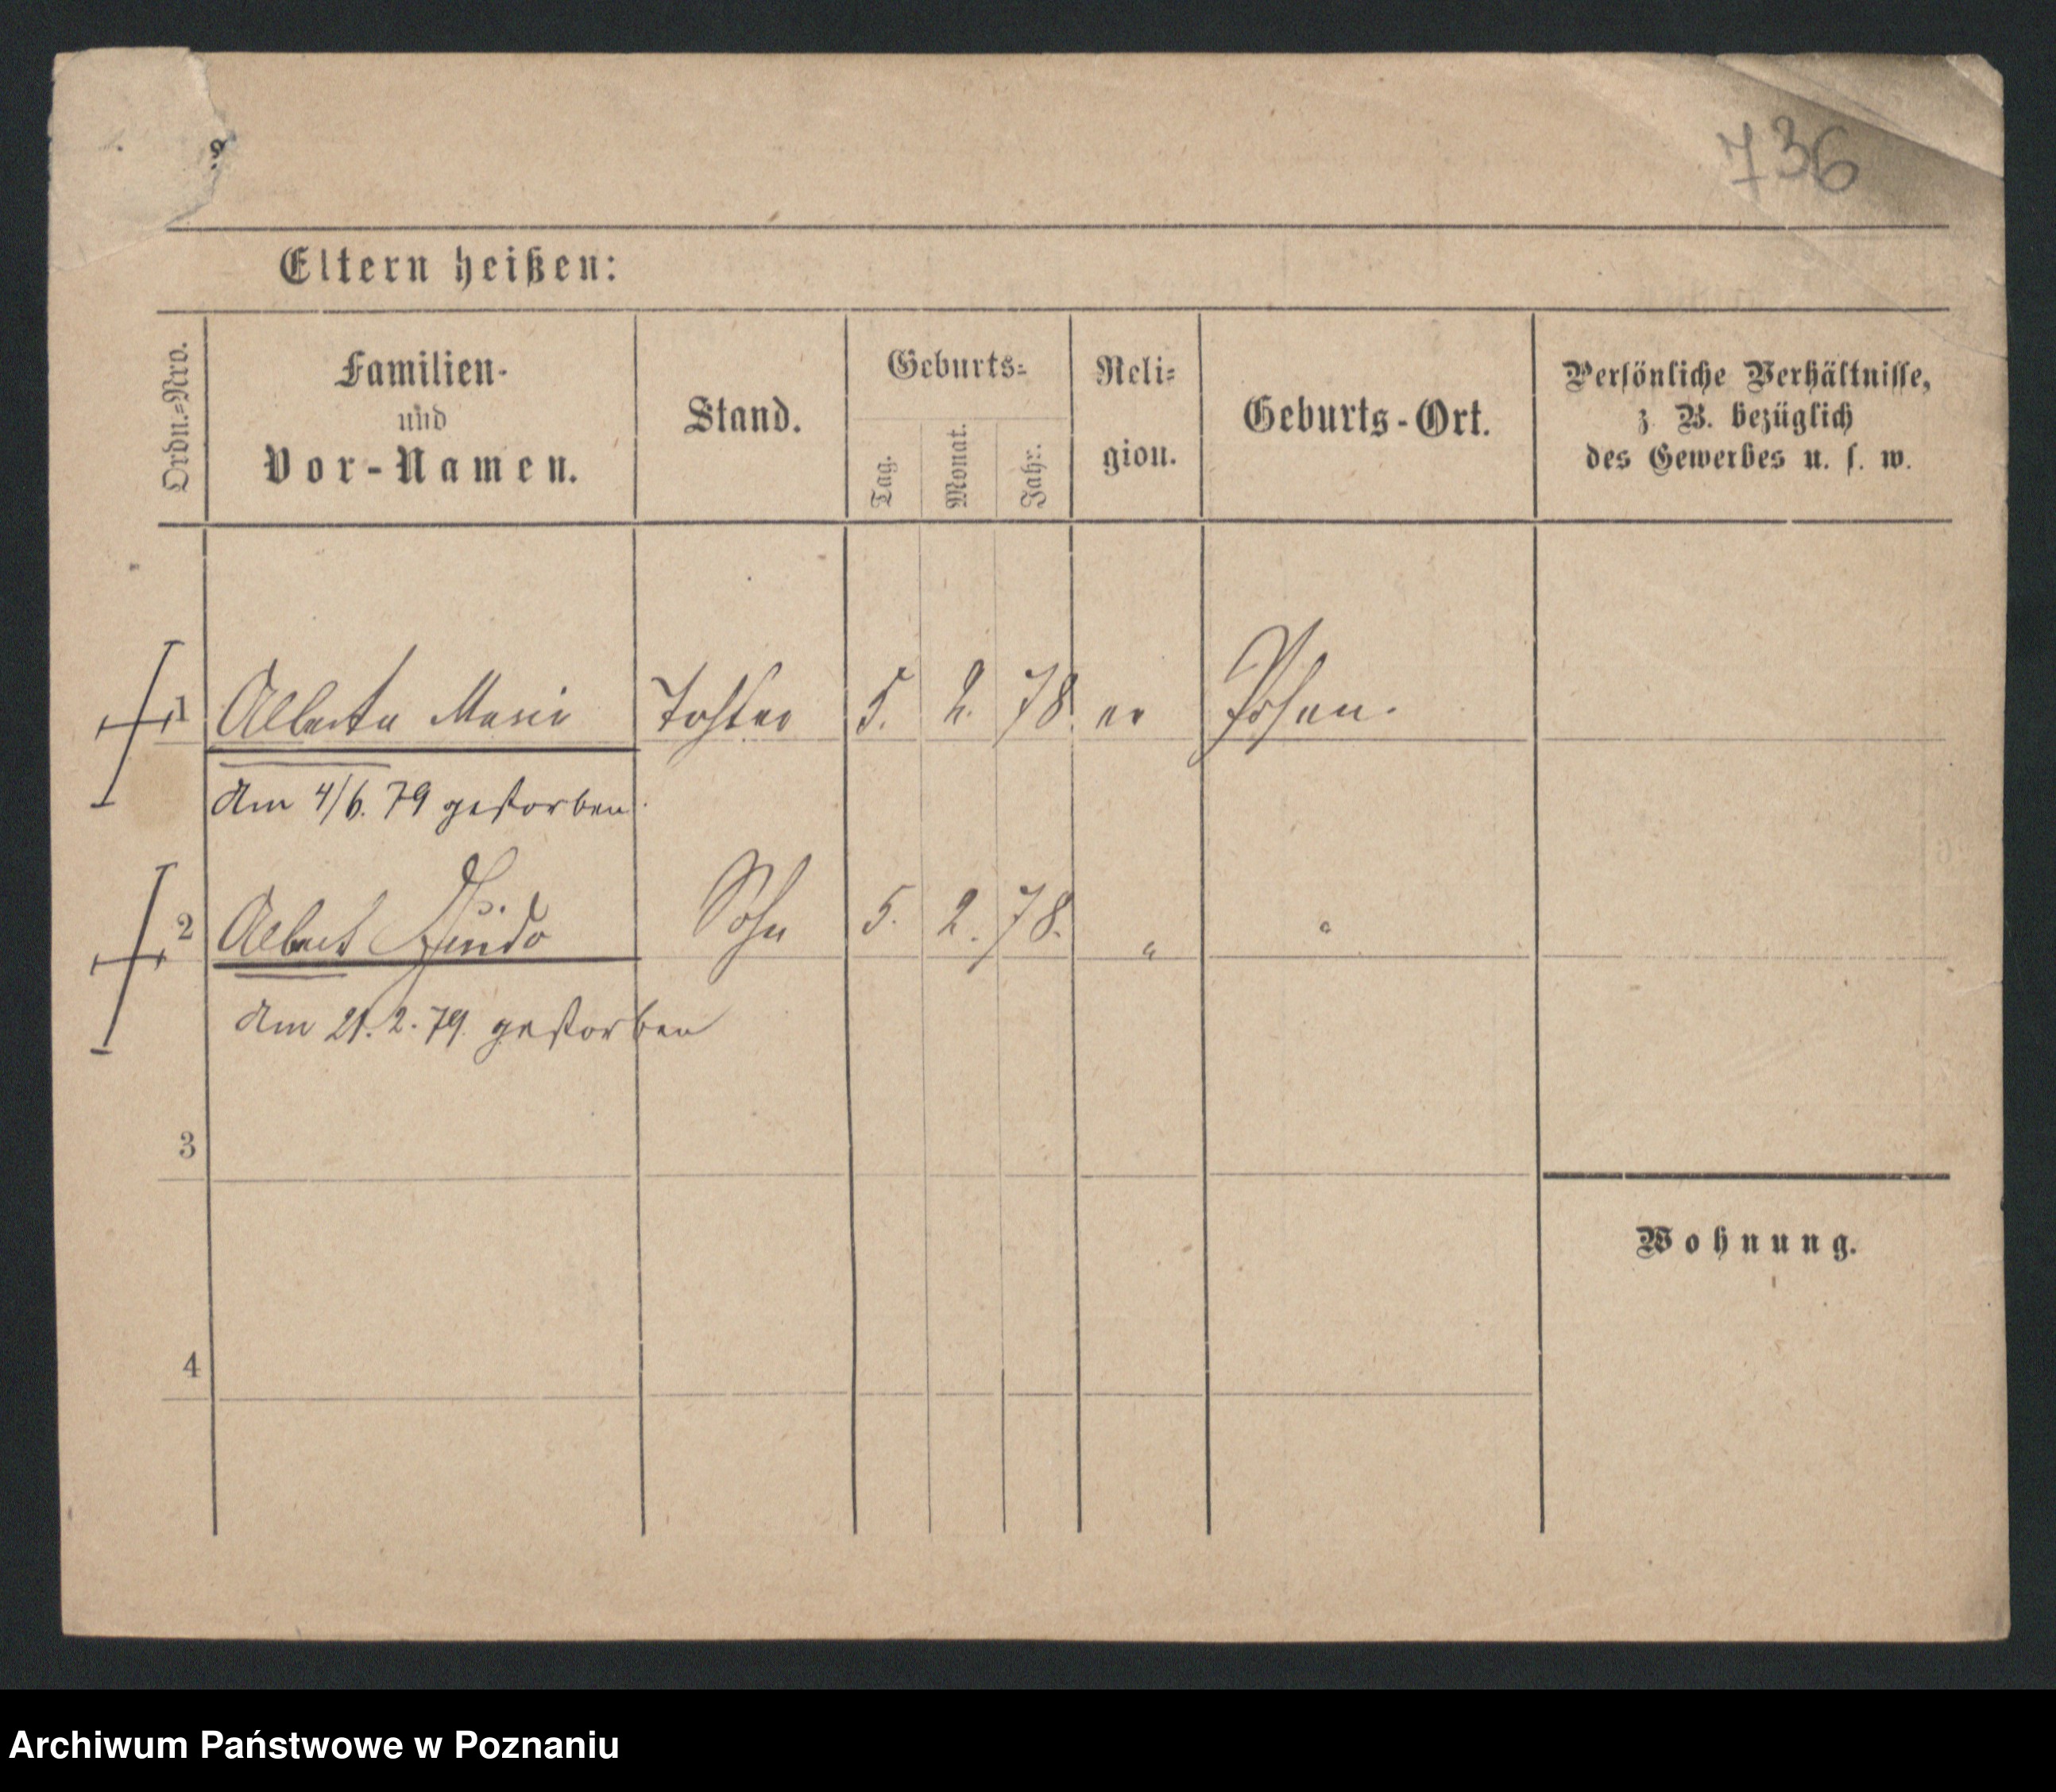 736
Eltern heißen:
Ordn.=Nro.
Familien-
und
Vor-Namen.
Stand.
Geburts=
Tag.
Monat.
Jahr.
Reli=
gion.
Geburts-Ort.
Persönliche Verhältnisse,
z. B. bezüglich
des Gewerbes u. s. w.
1 Alberta Marie Tochter 5. 2. 78. ev Posen.
Am 4/6. 79 gestorben.
2 Albert Guido Sohn 5. 2. 78. " "
Am 21. 2. 79. gestorben
3
Wohnung.
4
Archiwum Państwowe w Poznaniu